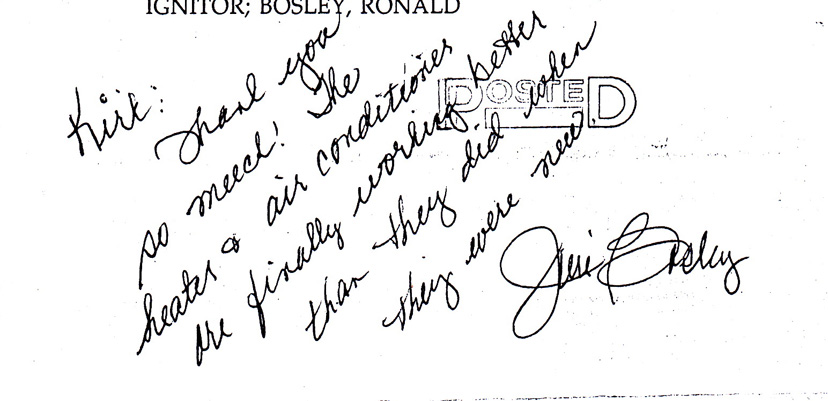 IGNITOR; BOSLEY, RONALD
Kirk:
Thank you
so much! The
heater & air conditioner
are finally working better
than they did when
they were new
POSTED
Bosley